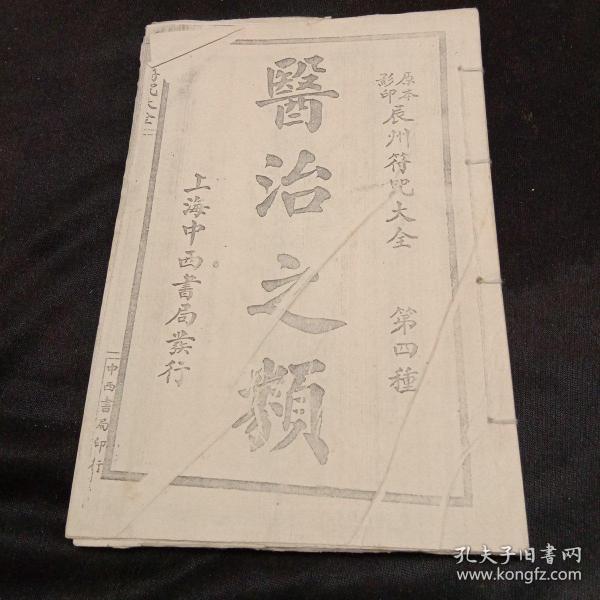 原本
影印
辰州符咒大全 第四種
醫治之類
上海中西書局發行
符咒大全
中西書局印行
孔夫子旧書网
www.kongfz.com